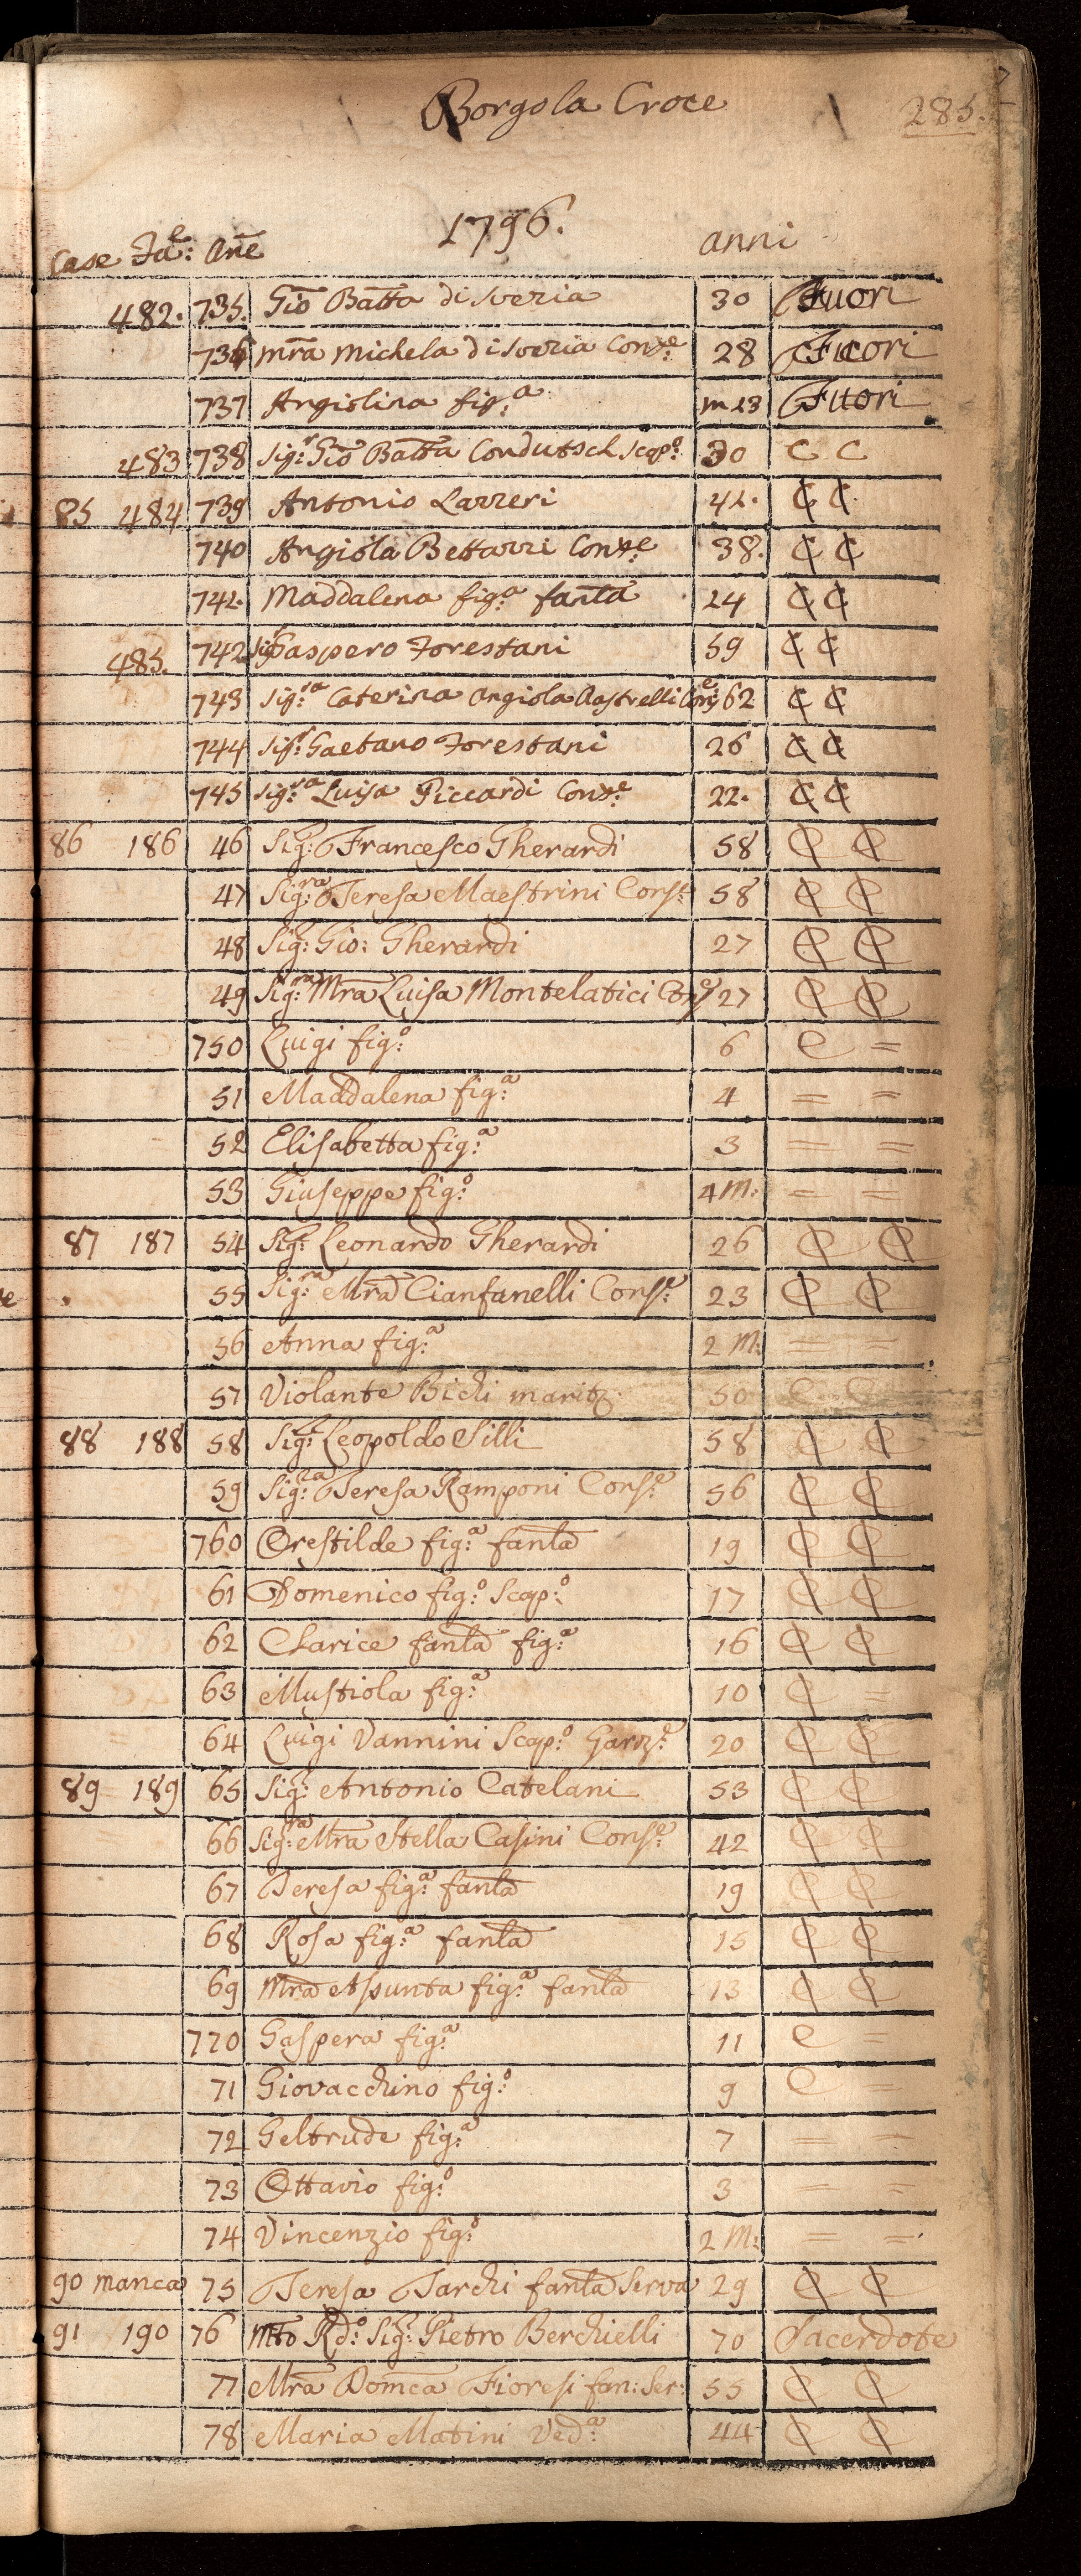 Borgo la Croce 285.
1796.
Case Fa:e Ane anni
482. 735. Gio Batta di Sveria 30 Fuori
736 Mra Michela di Sveria Conse: 28 Fuori
737 Angiolina fig:a m 23 Fuori
483 738 Sig:r Gio Batta Condutsch Scap:o 30 C C
85 484 739 Antonio Lazzeri 41. C C
740 Angiola Bettazzi Conse: 38. C C
741. Maddalena fig:a fanla 24 C C
485. 742 Sig: Gaspero Forestani 59 C C
743 Sig:ra Caterina Angiola Conse: 62 C C
744 Sig:r Gaetano Forestani 26 C C
745 Sig:ra Luisa Piccardi Conse: 22. C C
86 186 46 Sig:r Francesco Gherardi 58 C C
47 Sig:ra Teresa Maestrini Cons: 58 C C
48 Sig: Gio: Gherardi 27 C C
49 Sig:ra Mra Luisa Montelatici Conse 27 C C
750 Luigi fig:o 6 C =
51 Maddalena fig:a 4 = =
52 Elisabetta fig:a 3 = =
53 Giuseppe fig:o 4 M: = =
87 187 54 Sig:r Leonardo Gherardi 26 C C
55 Sig:ra Mra Cianfanelli Conse: 23 C C
56 Anna fig:a 2 M: = =
57 Violante Bichi marit: 50 C C
88 188 58 Sig:r Leopoldo Silli 58 C C
59 Sig:ra Teresa Ramponi Conse: 56 C C
760 Orestilde fig:a fanla 19 C C
61 Domenico fig:o Scap:o 17 C C
62 Clarice fanla fig:a 16 C C
63 Mustiola fig:a 10 C =
64 Luigi Vannini Scap:o Garz:e 20 C C
89 189 65 Sig:r Antonio Catelani 53 C C
66 Sig:ra Mra Stella Casini Conse: 42 C C
67 Teresa fig:a fanla 19 C C
68 Rosa fig:a fanla 15 C C
69 Mra Assunta fig:a fanla 13 C C
770 Gaspera fig:a 11 C =
71 Giovacchino fig:o 9 C =
72 Geltrude fig:a 7 = =
73 Ottavio fig:o 3 = =
74 Vincenzio fig:o 2 M: = =
90 manca 75 Teresa Tarchi fanla Serva 29 C C
91 190 76 Mto Rdo: Sig:r Pietro Berchielli 70 Sacerdote
77 Mra Domca Fioresi fan: Ser: 55 C C
78 Maria Matini Ved:a 44 C C